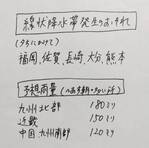 線状降水帯発生のおそれ
(夕方にかけて)
福岡、佐賀、長崎、大分、熊本
予想雨量
九州北部 180ミリ
近畿 150ミリ
中国 九州南部 120ミリ